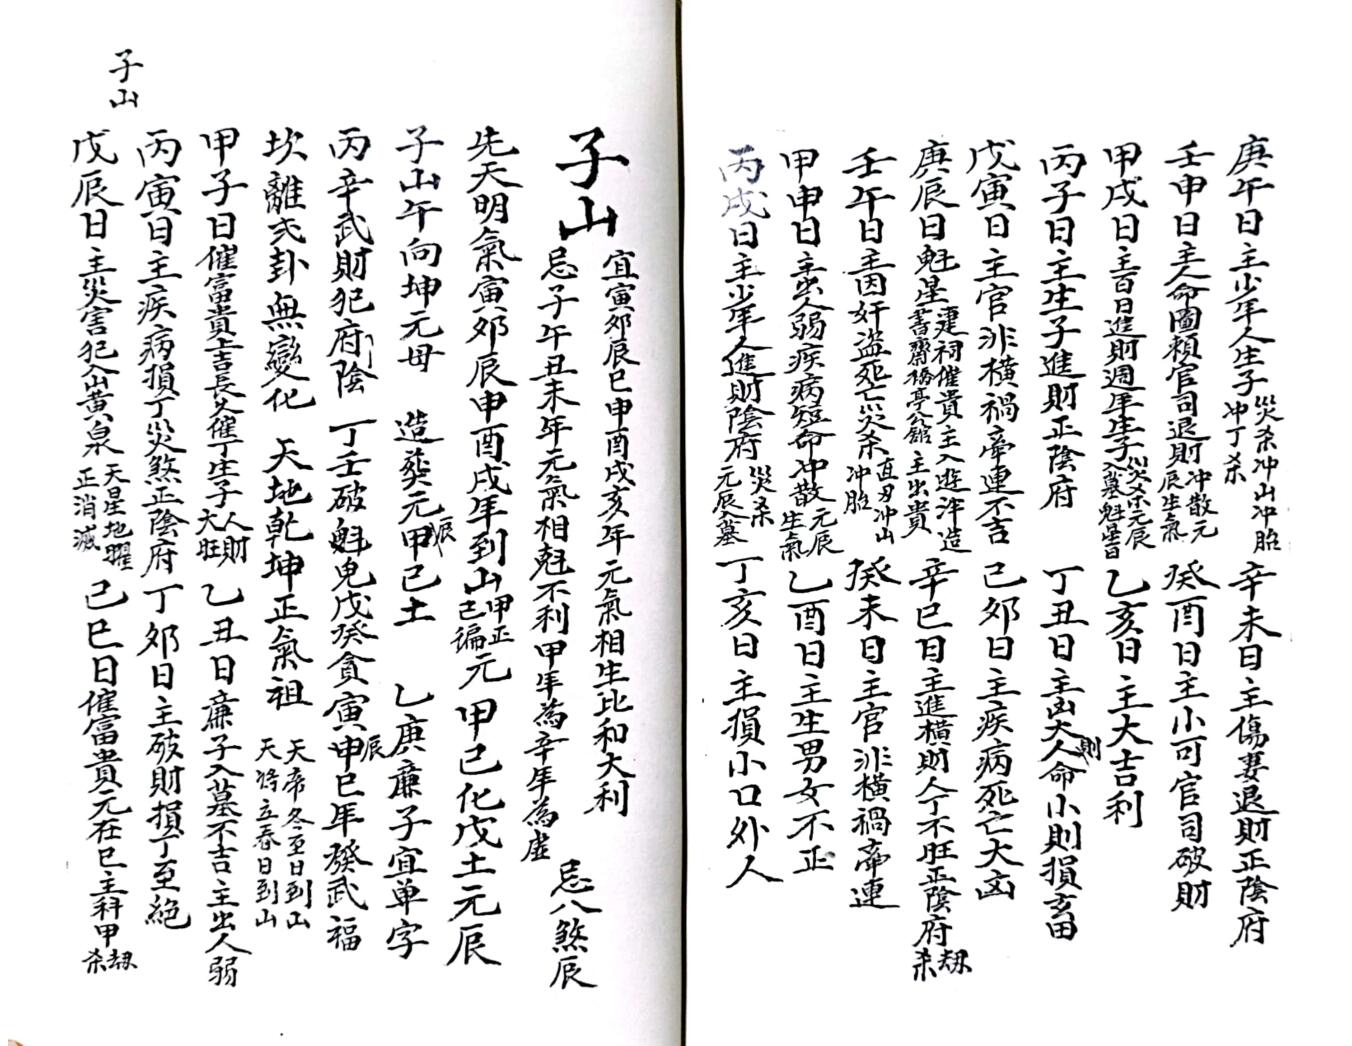 庚午日主少年人生子災杀冲山冲胎冲丁杀 辛未日主傷妻退財正陰府
壬申日主人命圖賴官司退財冲散元辰生氣 癸酉日主小可官司破財
甲戌日主百日進財週年生子災杀元辰入墓魁星 乙亥日主大吉利
丙子日主生子進財正陰府 丁丑日主凶大則人命小則損畜田
戊寅日主官非横禍牽連不吉 己卯日主疾病死亡大凶
庚辰日魁星建祠催貴主入遊泮造書齋橋亭公舘主出貴 辛巳日主進横財人丁不旺正陰府劫杀
壬午日主因奸盗死亡災杀直刃冲山冲胎 癸未日主官非横禍牽連
甲申日主出人弱疾病短命冲散元辰生氣 乙酉日主生男女不正
丙戌日主少年人進財陰府災杀元辰入墓 丁亥日主損小口外人
子山
宜寅卯辰巳申酉戌亥年元氣相生比和大利
忌子午丑未年元氣相尅不利甲年為辛年為虚 忌八煞辰
先天明氣寅卯辰申酉戌年到山甲正己遍元甲己化戊土元辰
子山午向坤元母 造葬元辰甲己土 乙庚廉子宜单字
丙辛武財犯府陰 丁壬破魁鬼戊癸貪寅申辰巳年發武福
坎離弍卦無變化 天地乾坤正氣祖 天帝冬至日到山天将立春日到山
甲子日催富貴上吉長久催丁生子人財大旺 乙丑日廉子入墓不吉主出人弱
丙寅日主疾病損丁災煞正陰府 丁卯日主破財損丁至絕
戊辰日主災害犯入山黄泉天星地曜正消滅 己巳日催富貴元在巳主科甲劫杀
子山